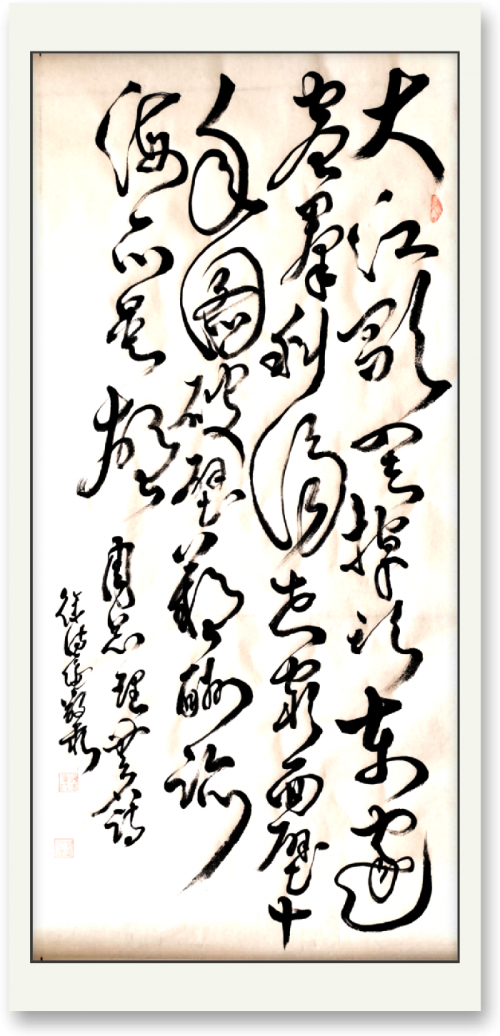 大江歌罷掉頭東邃
密羣科濟世窮面壁十
年圖破壁難酬蹈
海亦英雄
周总理詩
徐